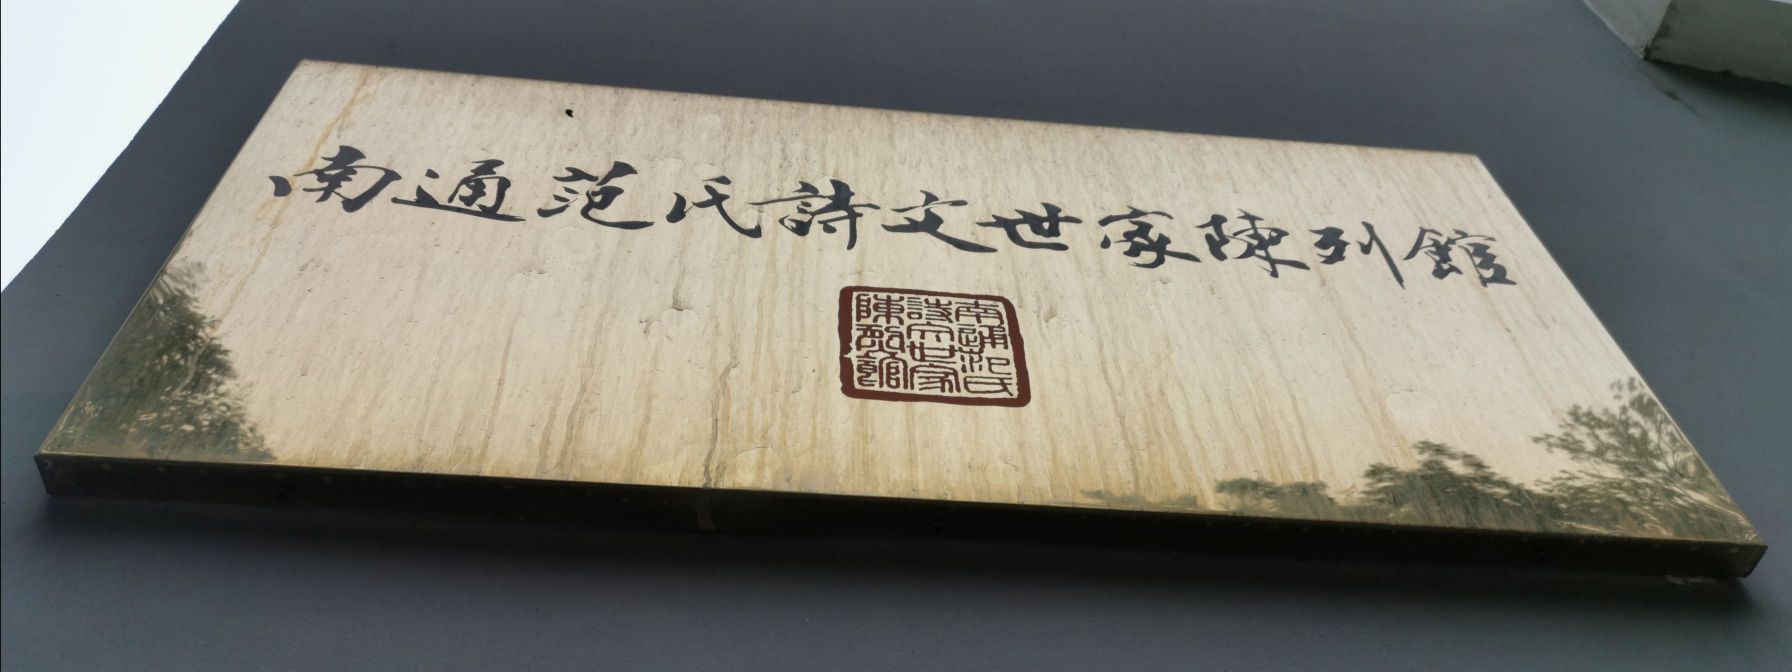 南通范氏詩文世家陳列館
南通范氏
詩文世家
陳列館